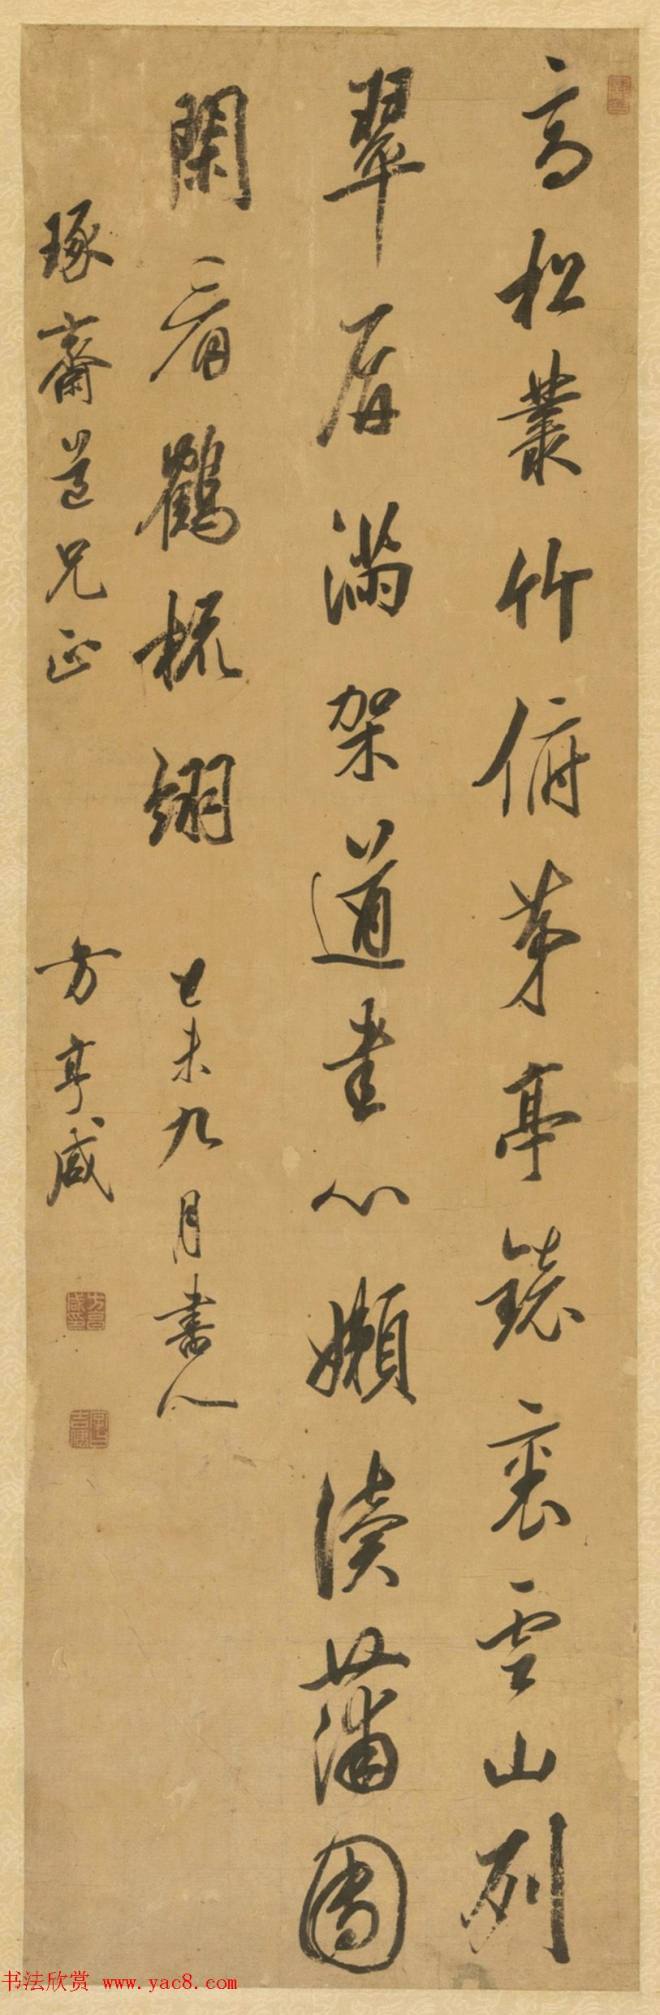 高松叢竹俯茅亭鏡裏雲山列
翠屏滿架道書心嬾讀蒲團
閑看鶴梳翎 己未九月書似
琢齋道兄正 方亨咸
书法欣赏 www.yac8.com